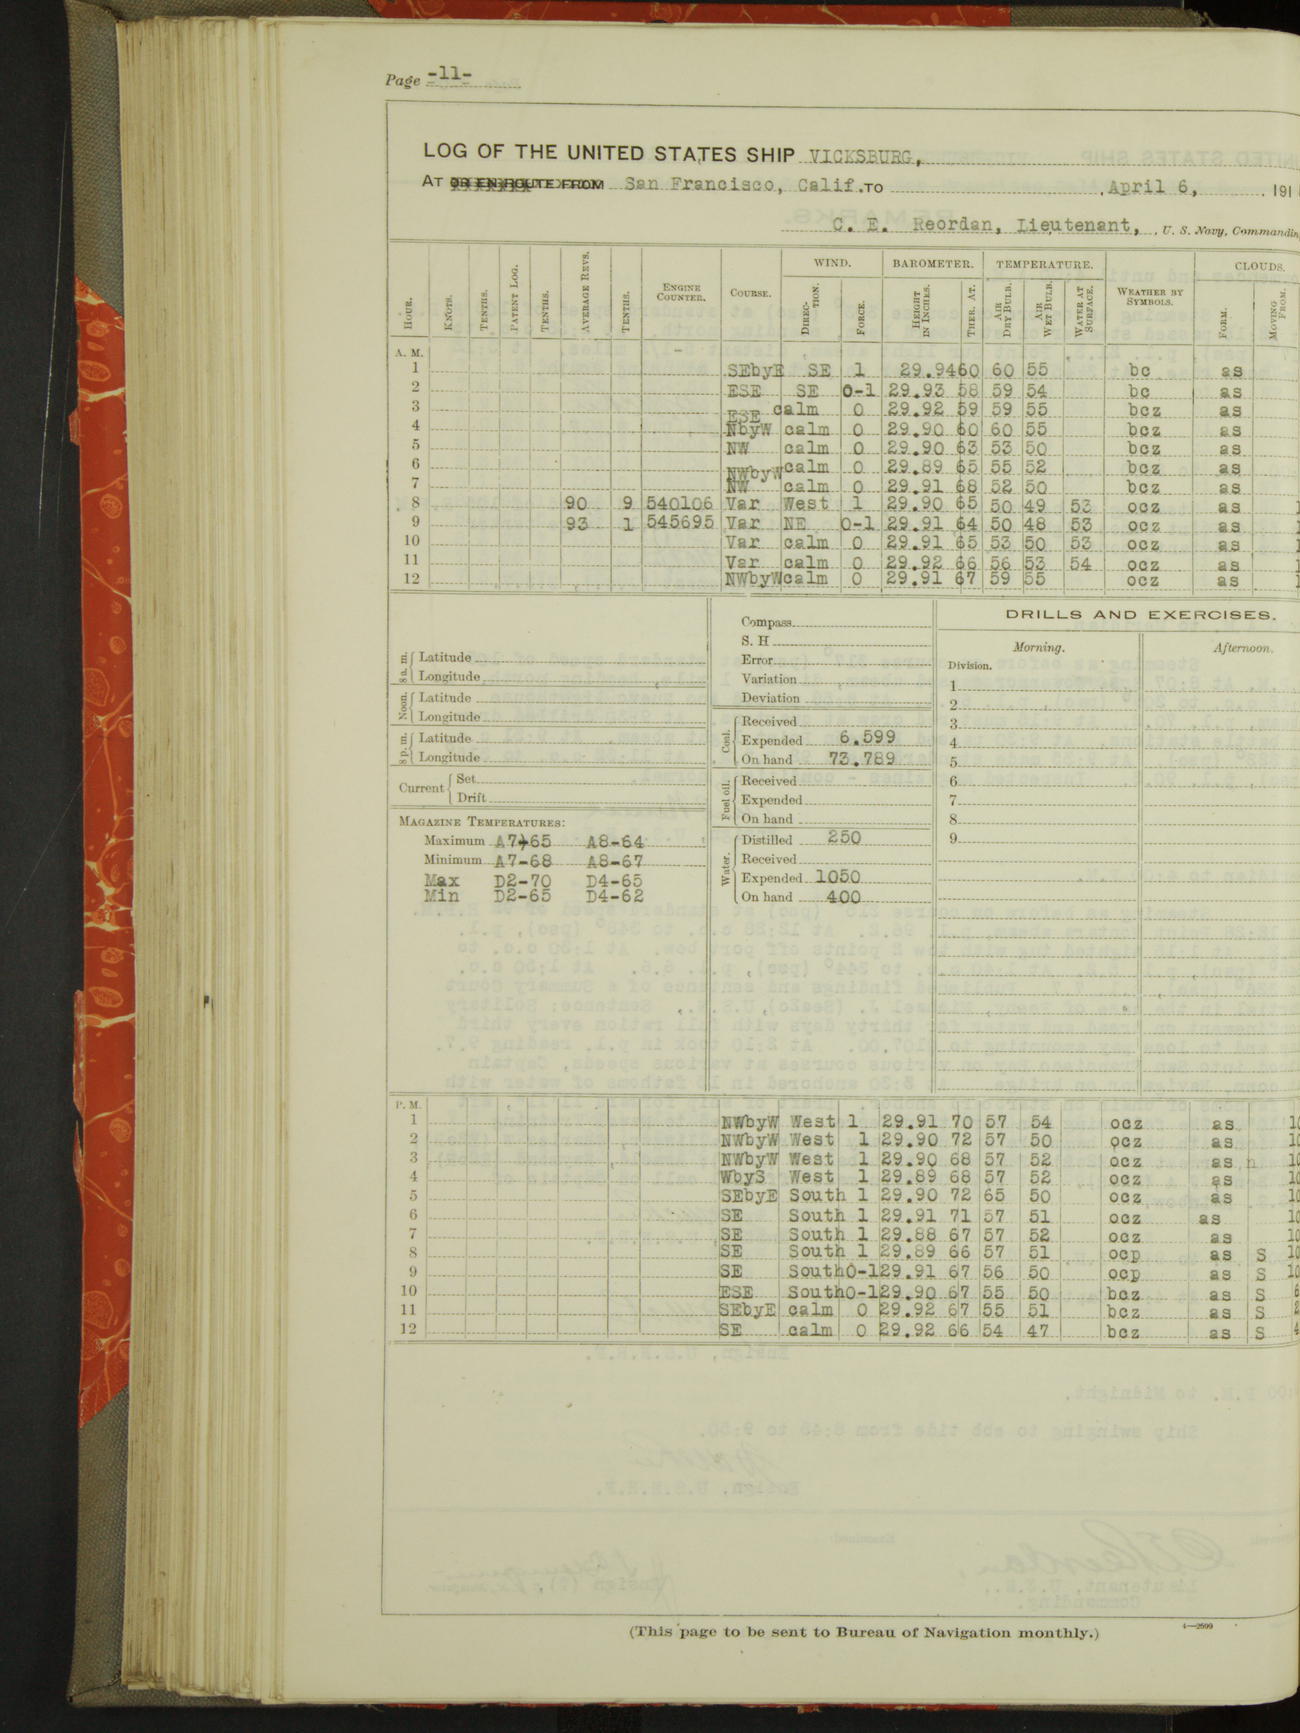 Page -11-
LOG OF THE UNITED STATES SHIP VICKSBURG,
AT OR EN ROUTE FROM San Francisco, Calif. TO April 6, 191
C. E. Reordan, Lieutenant, U. S. Navy, Commandin
HOUR. KNOTS. TENTHS. PATENT LOG. TENTHS. AVERAGE REVS. TENTHS. ENGINE COUNTER. COURSE. WIND. DIRECTION. FORCE. BAROMETER. HEIGHT IN INCHES. THER. AT. TEMPERATURE. AIR DRY BULB. AIR WET BULB. WATER AT SURFACE. WEATHER BY SYMBOLS. CLOUDS. FORM. MOVING FROM.
A. M.
1 SEbyE SE 1 29.94 60 60 55 bc as
2 ESE SE 0-1 29.93 58 59 54 bc as
3 ESE calm 0 29.92 59 59 55 bcz as
4 NbyW calm 0 29.90 60 60 55 bcz as
5 NW calm 0 29.90 63 53 50 bcz as
6 NWbyW calm 0 29.89 65 55 52 bcz as
7 NW calm 0 29.91 68 52 50 bcz as
8 90 9 540106 Var West 1 29.90 65 50 49 53 ocz as 1
9 93 1 545695 Var NE 0-1 29.91 64 50 48 53 ocz as 1
10 Var calm 0 29.91 65 53 50 53 ocz as 1
11 Var calm 0 29.92 66 56 53 54 ocz as 1
12 NWbyW calm 0 29.91 67 59 55 ocz as 1
8 a. m. Latitude
Longitude
Noon. Latitude
Longitude
8 p. m. Latitude
Longitude
Current Set
Drift
MAGAZINE TEMPERATURES:
Maximum A7-65 A8-64
Minimum A7-68 A8-67
Max D2-70 D4-65
Min D2-65 D4-62
Compass
S. H
Error
Variation
Deviation
Coal. Received
Expended 6.599
On hand 73.789
Fuel oil. Received
Expended
On hand
Water. Distilled 250
Received
Expended 1050
On hand 400
DRILLS AND EXERCISES.
Morning. Afternoon.
Division.
1
2
3
4
5
6
7
8
9
P. M.
1 NWbyW West 1 29.91 70 57 54 ocz as 10
2 NWbyW West 1 29.90 72 57 50 ocz as 10
3 NWbyW West 1 29.90 68 57 52 ocz as n 10
4 WbyS West 1 29.89 68 57 52 ocz as 10
5 SEbyE South 1 29.90 72 65 50 ocz as 10
6 SE South 1 29.91 71 57 51 ocz as 10
7 SE South 1 29.88 67 57 52 ocz as 10
8 SE South 1 29.89 66 57 51 ocp as S 10
9 SE South 0-1 29.91 67 56 50 ocp as S 10
10 ESE South 0-1 29.90 67 55 50 bcz as S 6
11 SEbyE calm 0 29.92 67 55 51 bcz as S 2
12 SE calm 0 29.92 66 54 47 bcz as S 4
(This page to be sent to Bureau of Navigation monthly.)
4—2599